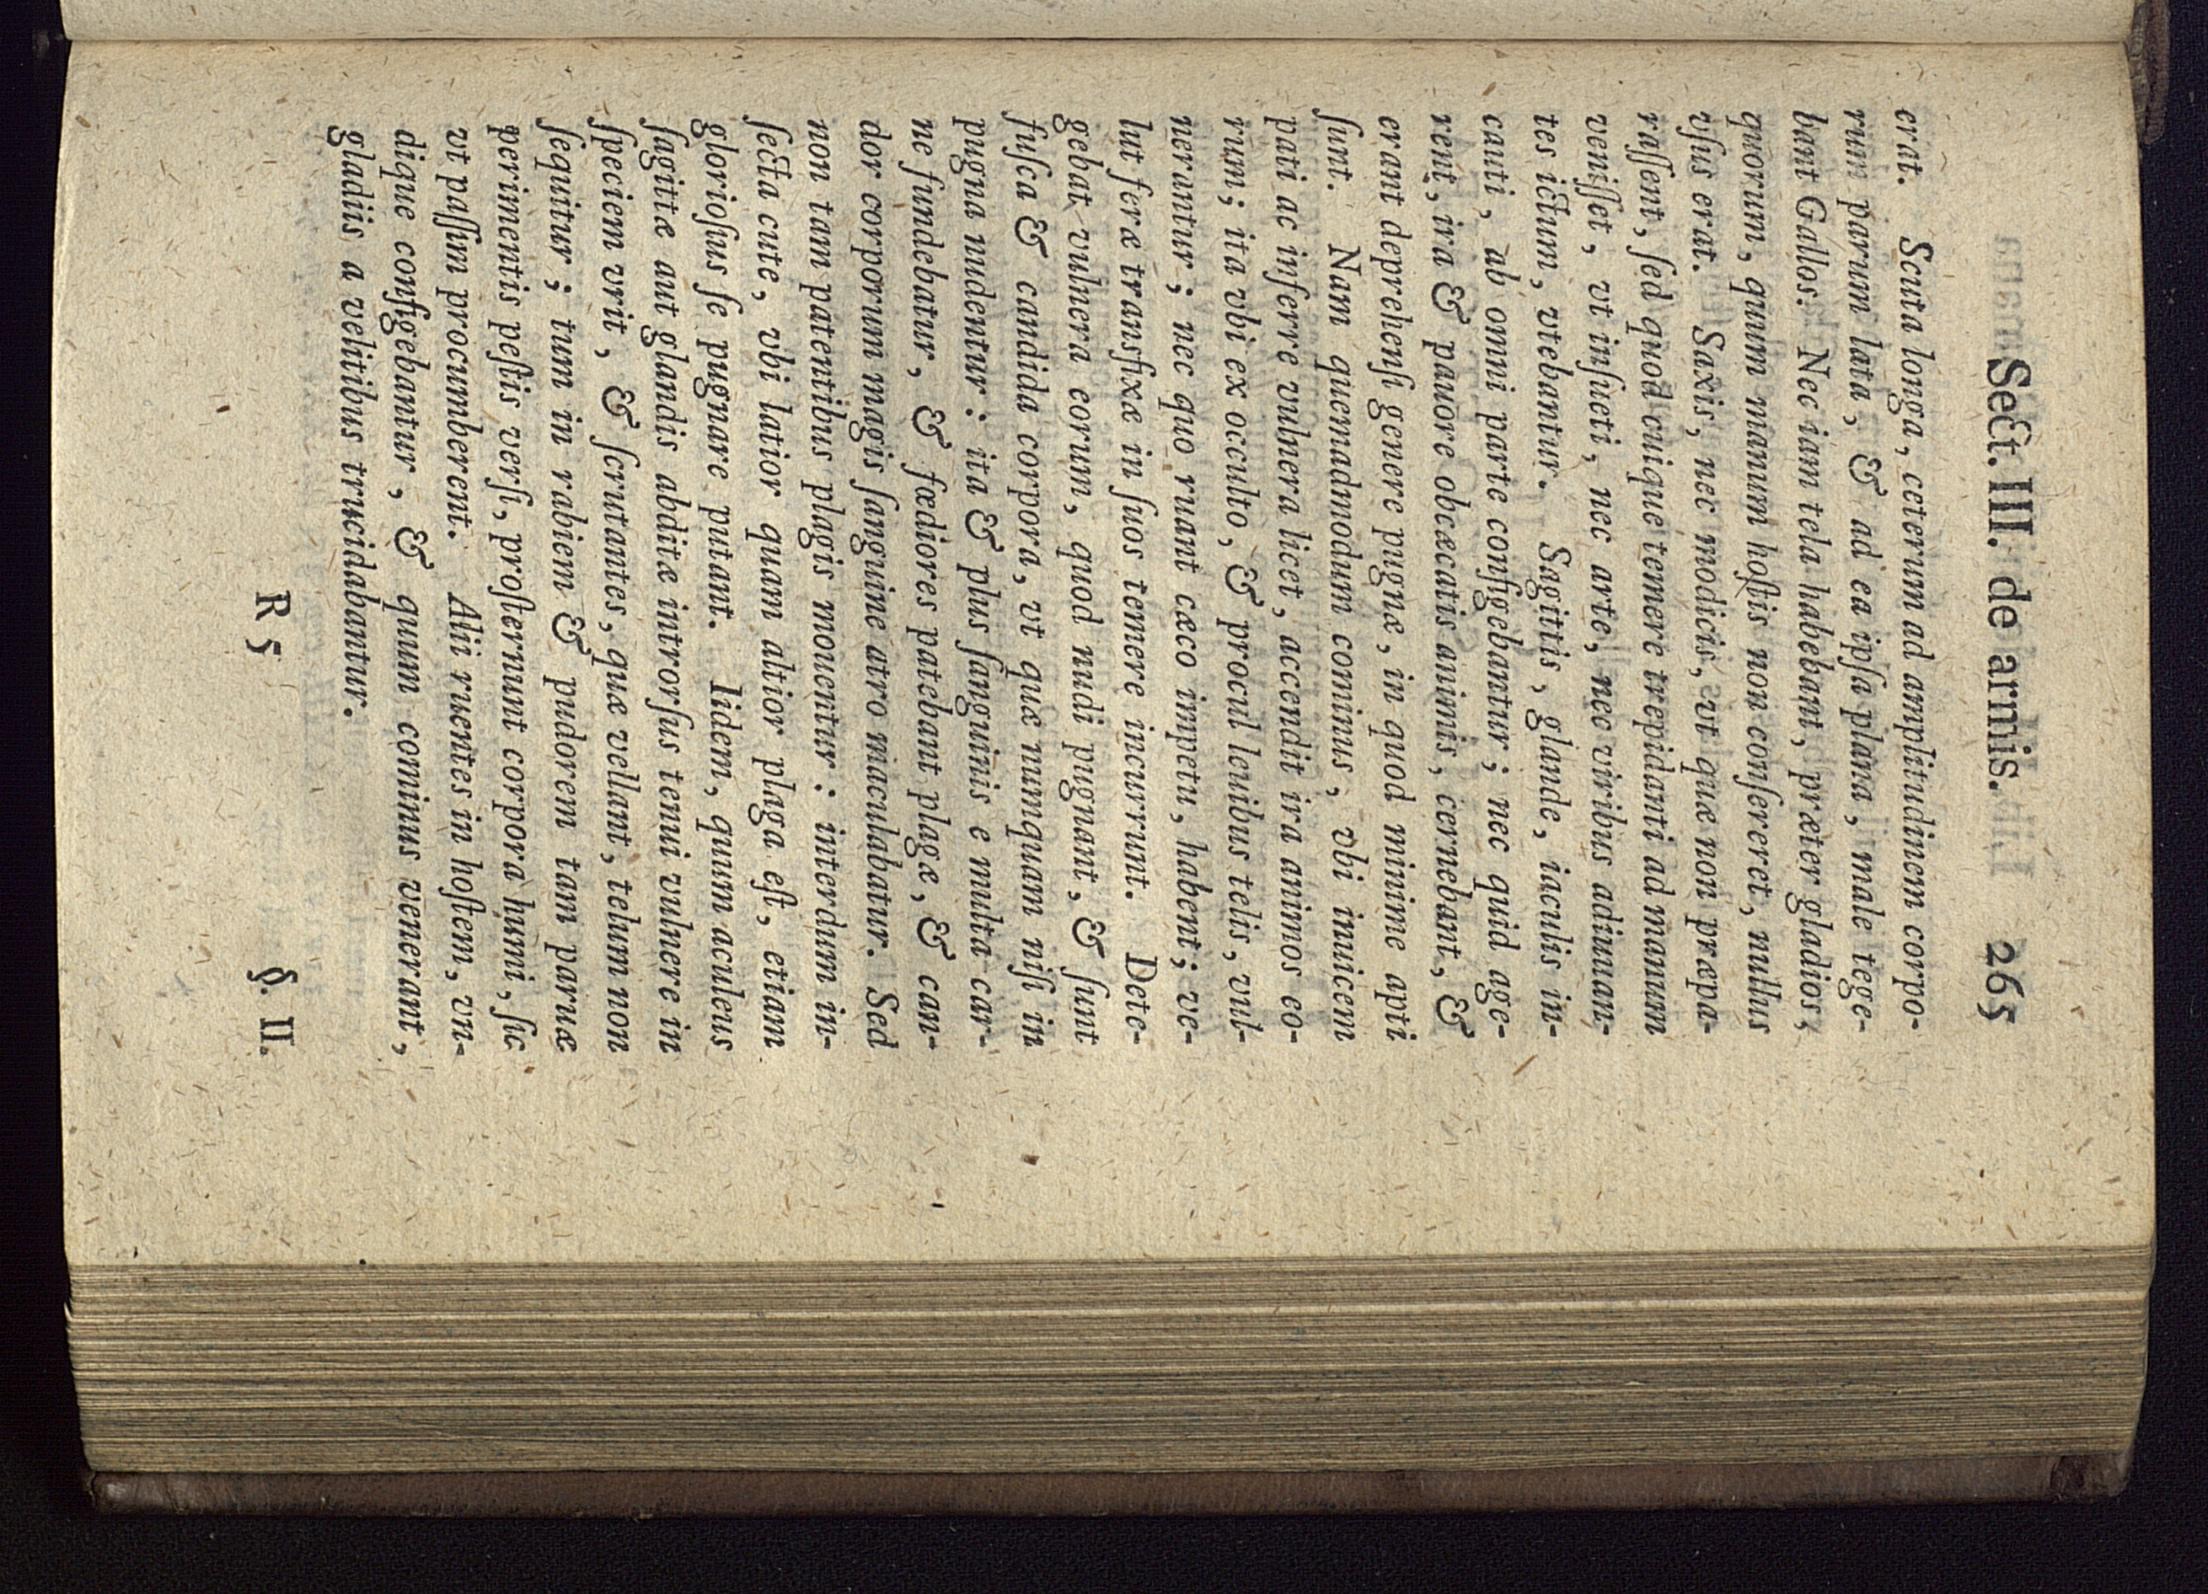 Sect. III. de armis. 265
erat. Scuta longa, ceterum ad amplitudinem corpo-
rum parum lata, & ad ea ipſa plana, male tege-
bant Gallos. Nec iam tela habebant, præter gladios,
quorum, quum manum hoſtis non conſereret, nullus
vſus erat. Saxis, nec modicis, vt quæ non præpa-
raſſent, ſed quod cuique temere trepidanti ad manum
veniſſet, vt inſueti, nec arte, nec viribus adiuuan-
tes ictum, vtebantur. Sagittis, glande, iaculis in-
cauti, ab omni parte configebantur; nec quid age-
rent, ira & pauore obcæcatis animis, cernebant, &
erant deprehenſi genere pugnæ, in quod minime apti
ſunt. Nam quemadmodum cominus, vbi inuicem
pati ac inferre vulnera licet, accendit ira animos eo-
rum; ita vbi ex occulto, & procul leuibus telis, vul-
nerantur; nec quo ruant cæco impetu, habent; ve-
lut feræ transfixæ in ſuos temere incurrunt. Dete-
gebat vulnera eorum, quod nudi pugnant, & ſunt
fuſca & candida corpora, vt quæ numquam niſi in
pugna nudentur: ita & plus ſanguinis e multa car-
ne fundebatur, & fœdiores patebant plagæ, & can-
dor corporum magis ſanguine atro maculabatur. Sed
non tam patentibus plagis mouentur: interdum in-
ſecta cute, vbi latior quam altior plaga eſt, etiam
glorioſius ſe pugnare putant. Iidem, quum aculeus
ſagittæ aut glandis abditæ introrſus tenui vulnere in
ſpeciem vrit, & ſcrutantes, quæ vellant, telum non
ſequitur; tum in rabiem & pudorem tam paruæ
perimentis peſtis verſi, proſternunt corpora humi, ſic
vt paſſim procumberent. Alii ruentes in hoſtem, vn-
dique configebantur, & quum cominus venerant,
gladiis a velitibus trucidabantur.
R 5 §. II.